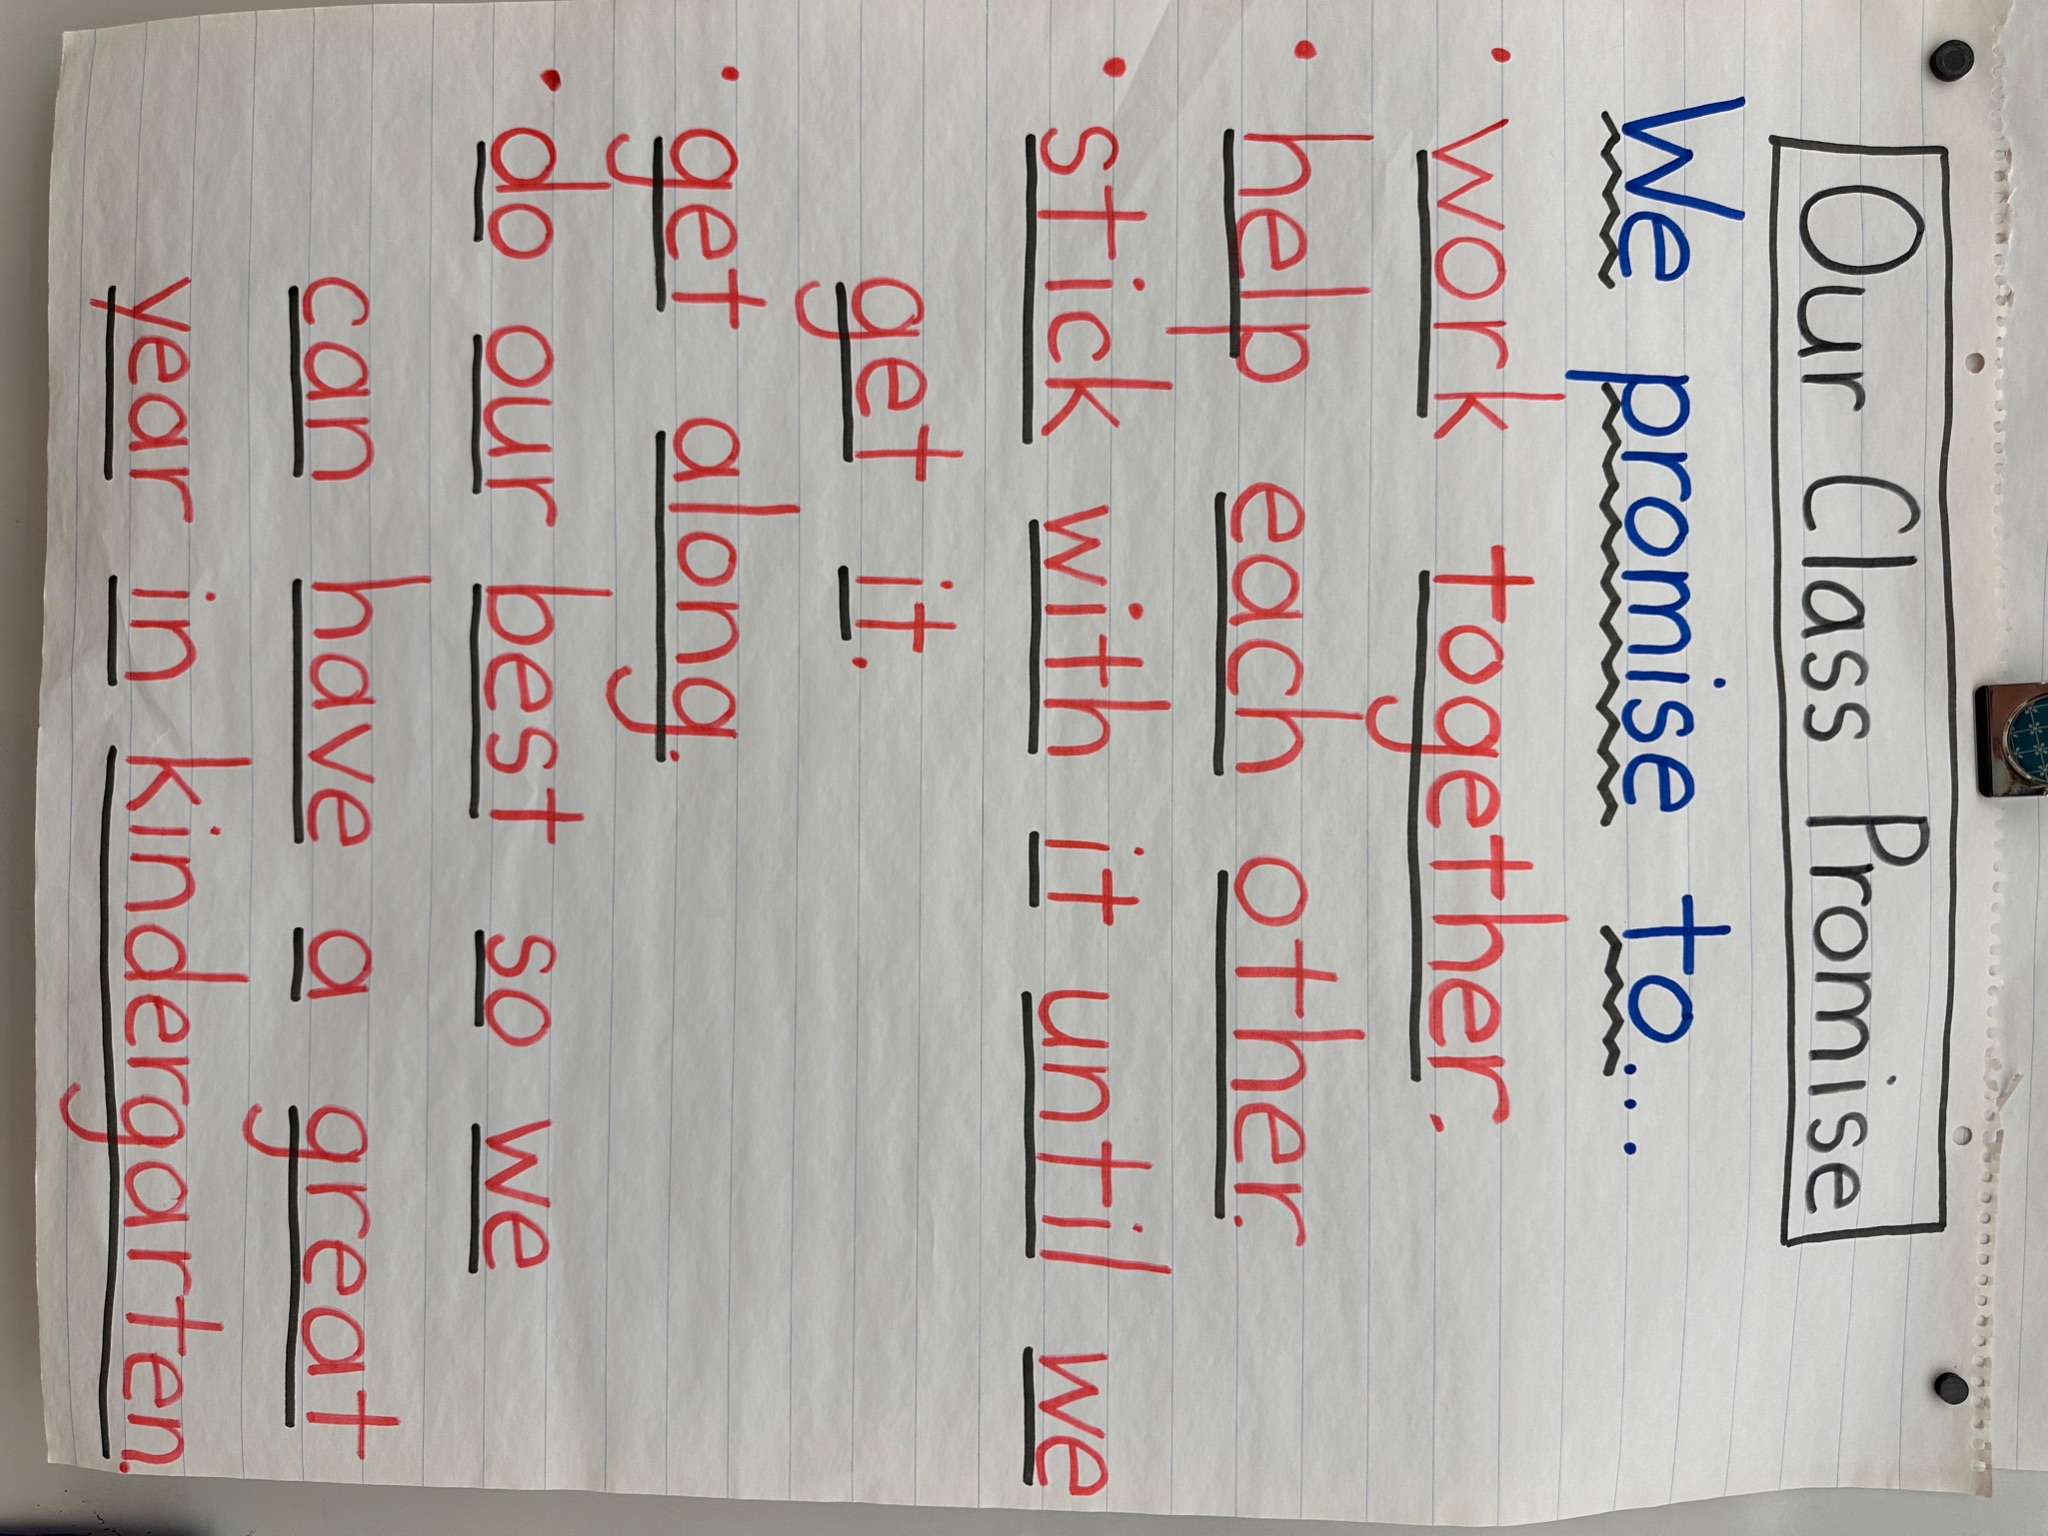 Our Class Promise
We promise to....
• work together.
• help each other.
• stick with it until we
get it.
• get along.
• do our best so we
can have a great
year in kindergarten.